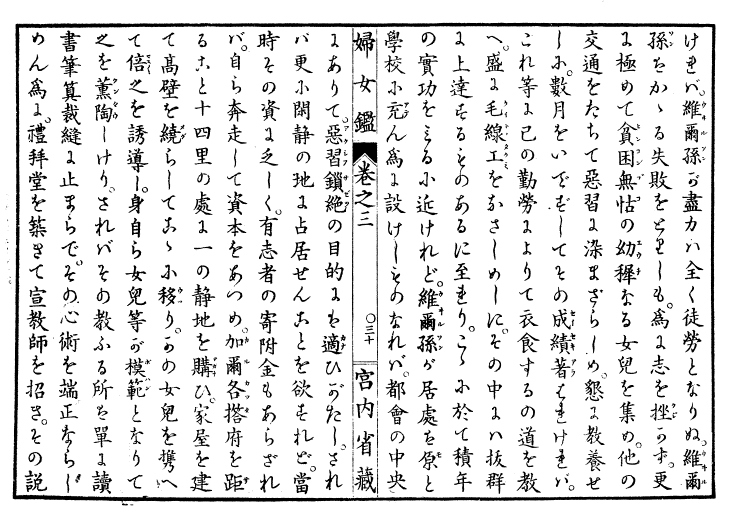 けれバ。維爾孫ガ盡力ハ全く徒勞となりぬ。維爾
孫ちかゝる失敗をとりしも。爲に志を挫かす。更
に極めて貧困無怙の幼穉なる女兒を集め。他の
交通をたちて惡習に染まざらしめ。懇に教養せ
しに。數月をいでずしてその成績著はれけれバ。
これ等に己の勤勞によりて衣食するの道を教
へ。盛に毛線工をなさしめしに。その中にハ拔群
に上達するものあるに至れり。こゝに於て積年
の實功をミるに近けれど。維爾孫が居處を原と
學校に充ん爲に設けしものなれバ。都會の中央
婦女鑑 卷之三 〇三十 宮内省藏
にありて。惡習鎖絶の目的にも適ひがたし。され
バ更に閑静の地に占居せんことを欲すれど。當
時その資に乏しく。有志者の寄附金もあらざれ
バ。自ら奔走して資本をあつめ。加爾各搭府を距
ること十四里の處に一の静地を購ひ。家屋を建
て高壁を繞らしてこゝに移り。かの女兒を携へ
て倍之を誘導し。身自ら女兒等ガ模範となりて
之を薫陶しけり。さればその教ふる所を單に讀
書筆算裁縫に止まらで。その心術を端正ならし
めん爲に。禮拜堂を築きて宣教師を招き。その説